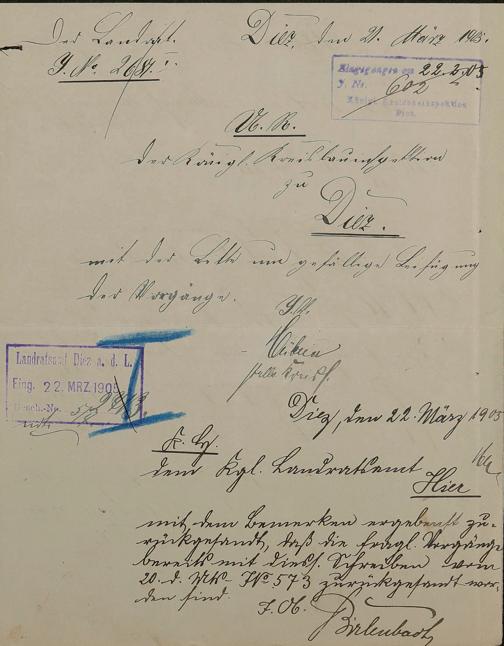 Der Landrat.
J. No. 2651.
Diez, den 21. März 1905.
Eingegangen am 22.3.05
J. Nr. 602
Königl. Kreisbauinspektion
Diez.
U. R.
der Königl. Kreisbauinspektion
zu
Diez.
mit der Bitte um gefällige Beifügung
der Vorgänge.
J. V.
Landratsamt Diez a. d. L.
Eing. 22. MRZ. 1905
Diez, den 22. März 1905
K. H.
dem Kgl. Landratsamt
Hier
mit dem Bemerken ergebenst zu-
rückgesandt, daß die fragl. Vorgänge
bereits mit diess. Schreiben vom
20. d. Mts. J№ 573 zurückgesandt wor-
den sind.
Birlenbach